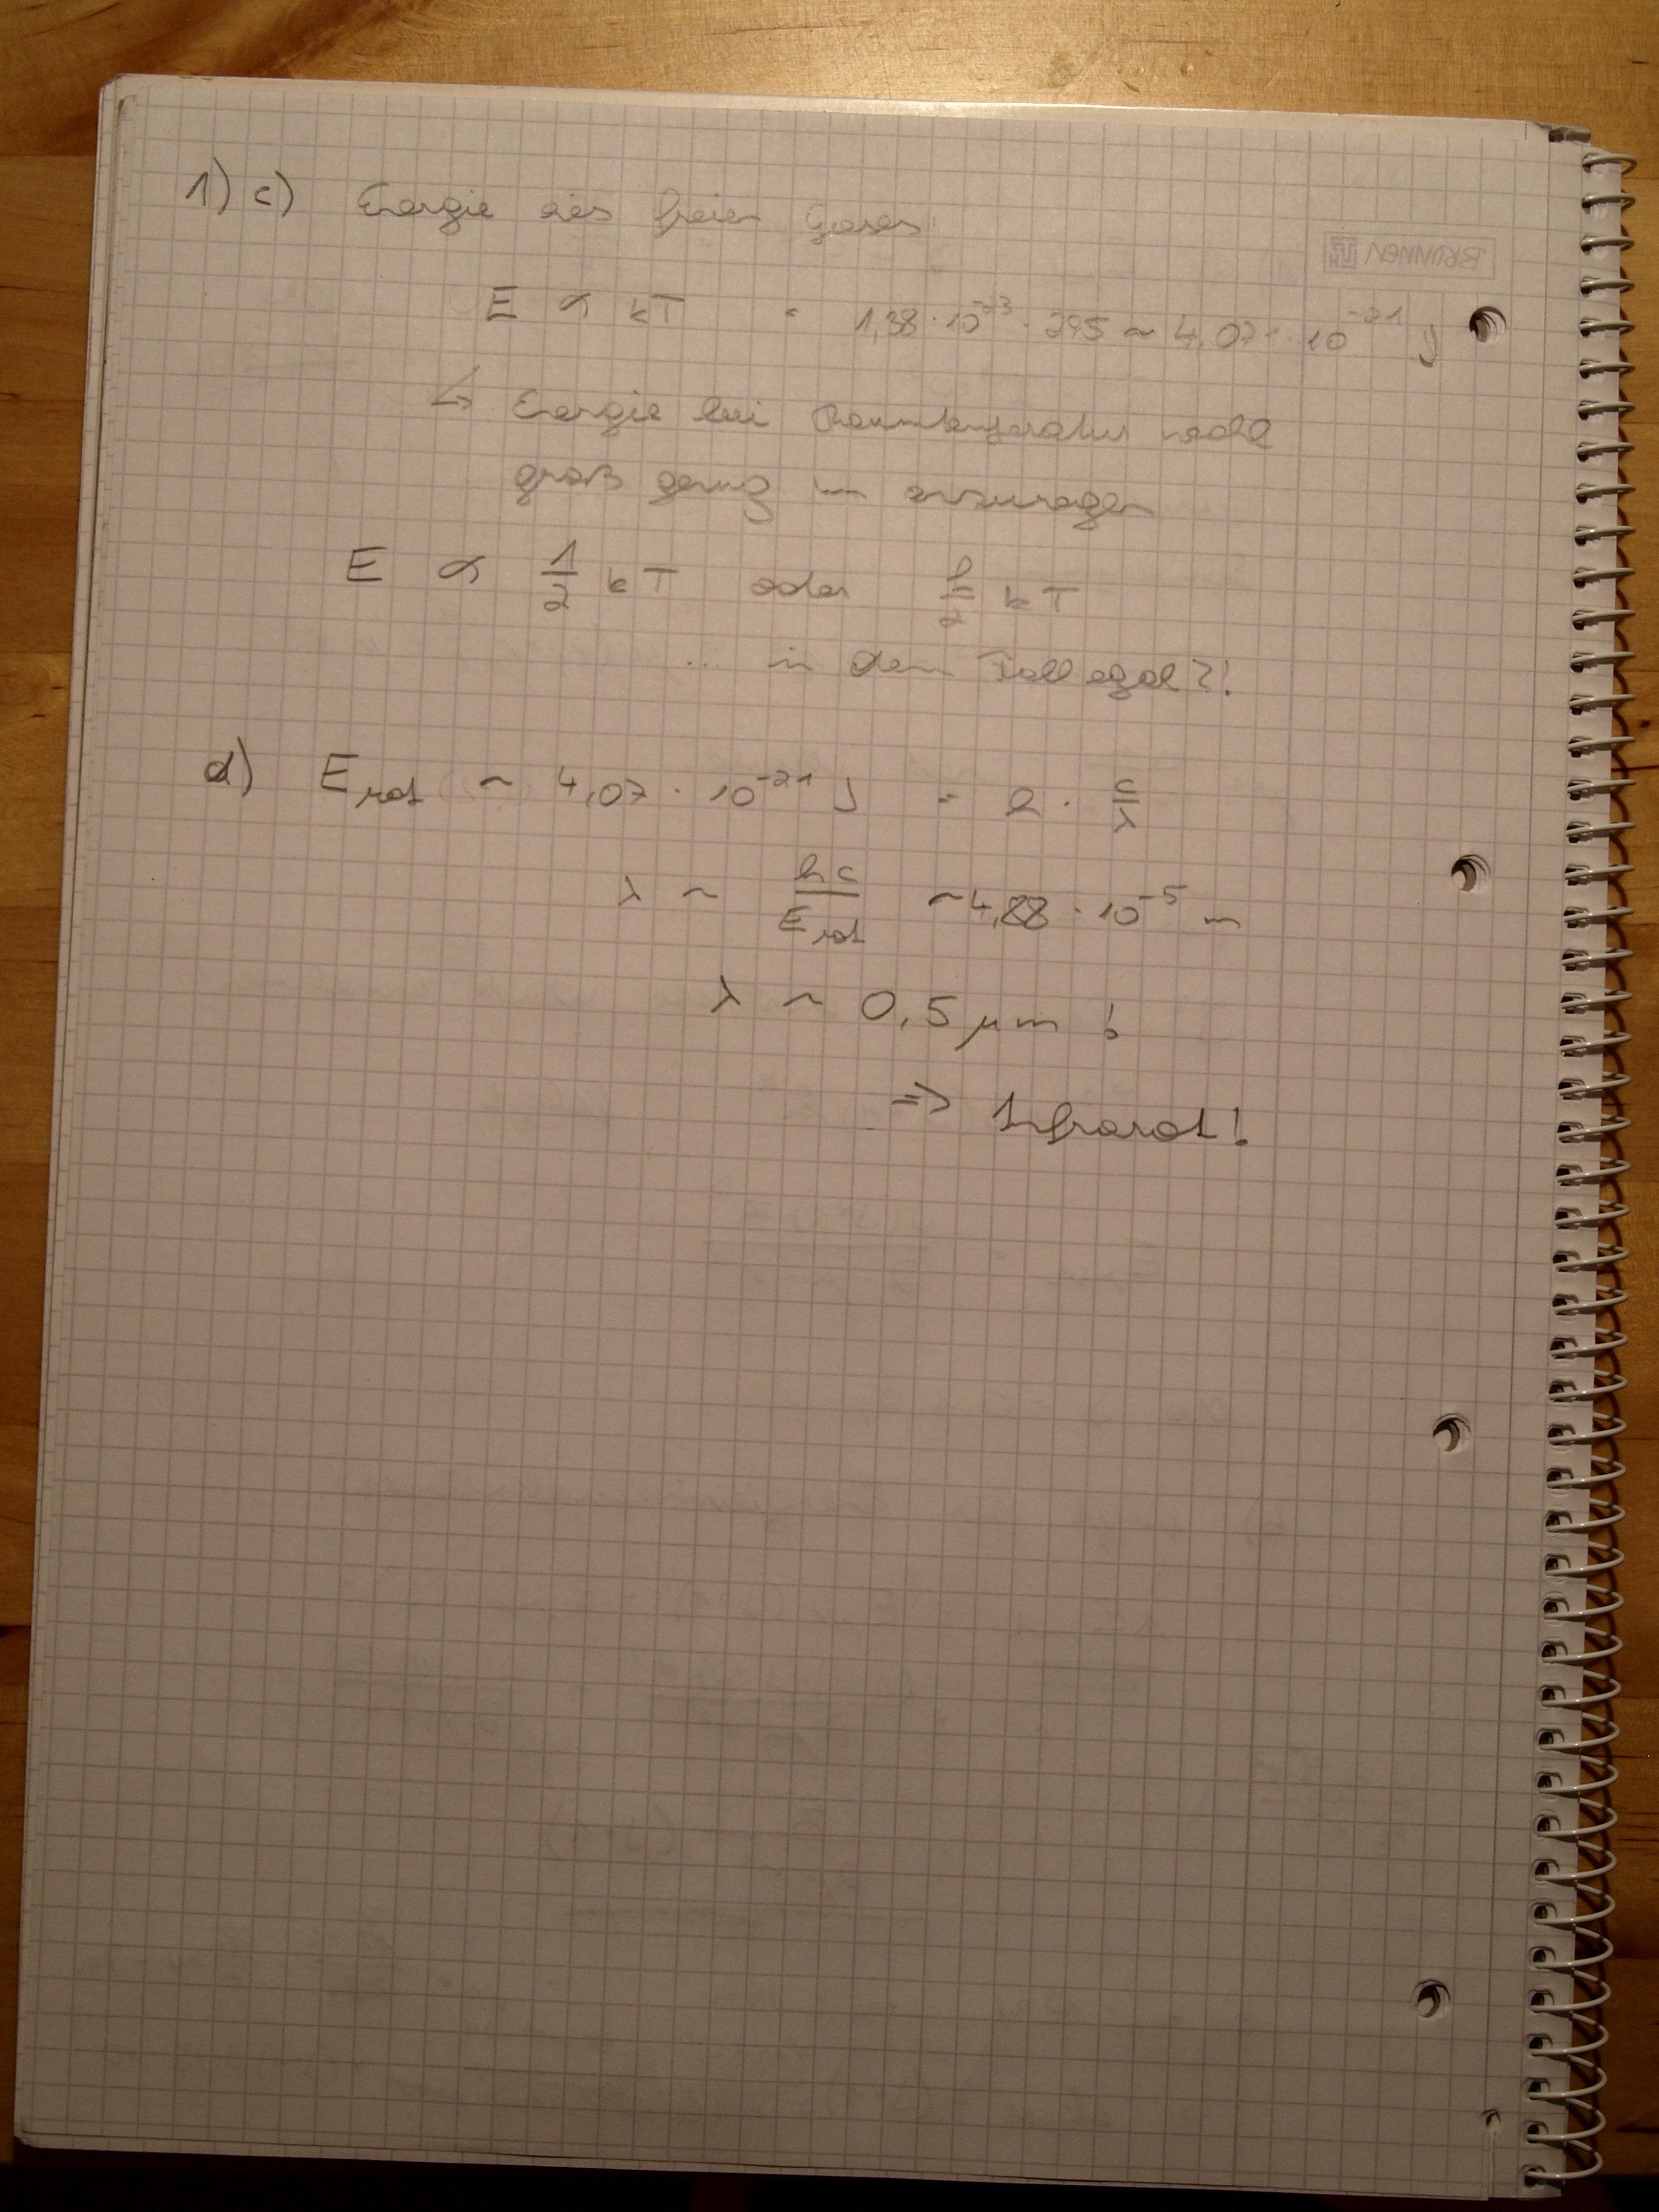 1) c) Energie des freien Gases
BRUNNEN
E ∝ kT = 1,38 · 10^-23 · 295 ~ 4,071 · 10^-21 J
↳ Energie bei Raumtemperatur nicht
groß genug um anzuregen
E ∝ 1/2 kT oder f/2 kT
... in dem Fall egal?!
d) E_rot ~ 4,07 · 10^-21 J = h · c/λ
λ ~ hc/E_rot ~ 4,88 · 10^-5 m
λ ~ 0,5 µm !
=> Infrarot!